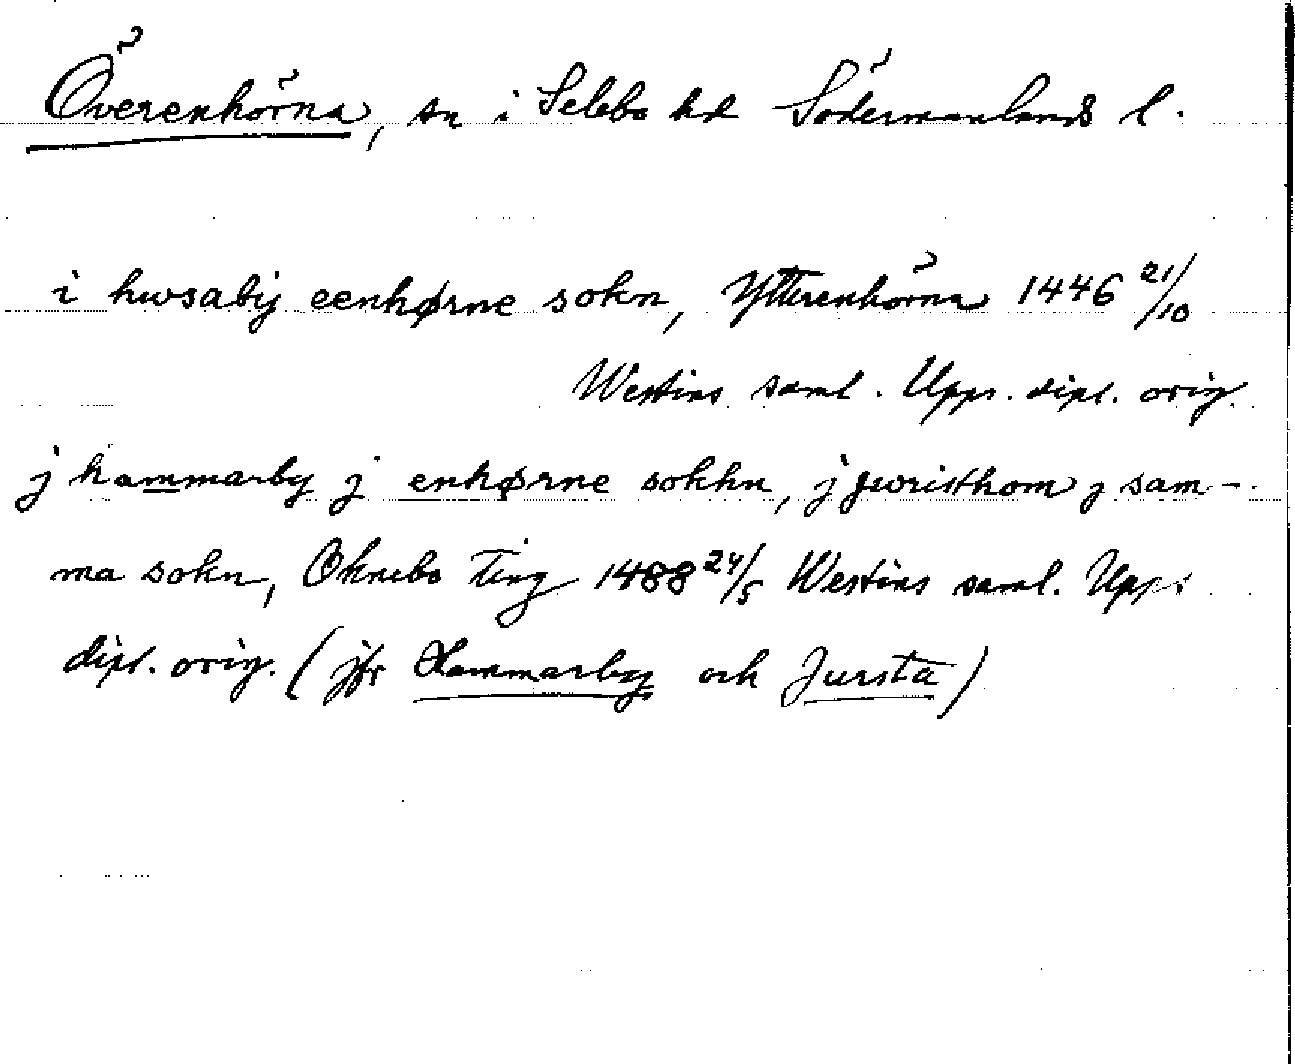 Överenhörna, sn i Selebo hd Södermanlands l.
i hwsabij eenhørne sokn, Ytterenhörna 1446 21/10
Westins saml. Upps. dipl. orig.
j hammarby j enhørne sokhn, j jwristhom j sam-
ma sokn, Öknebo Ting 1488 24/5 Westins saml. Upps
dipl. orig. (jfr Hammarby och Jursta)